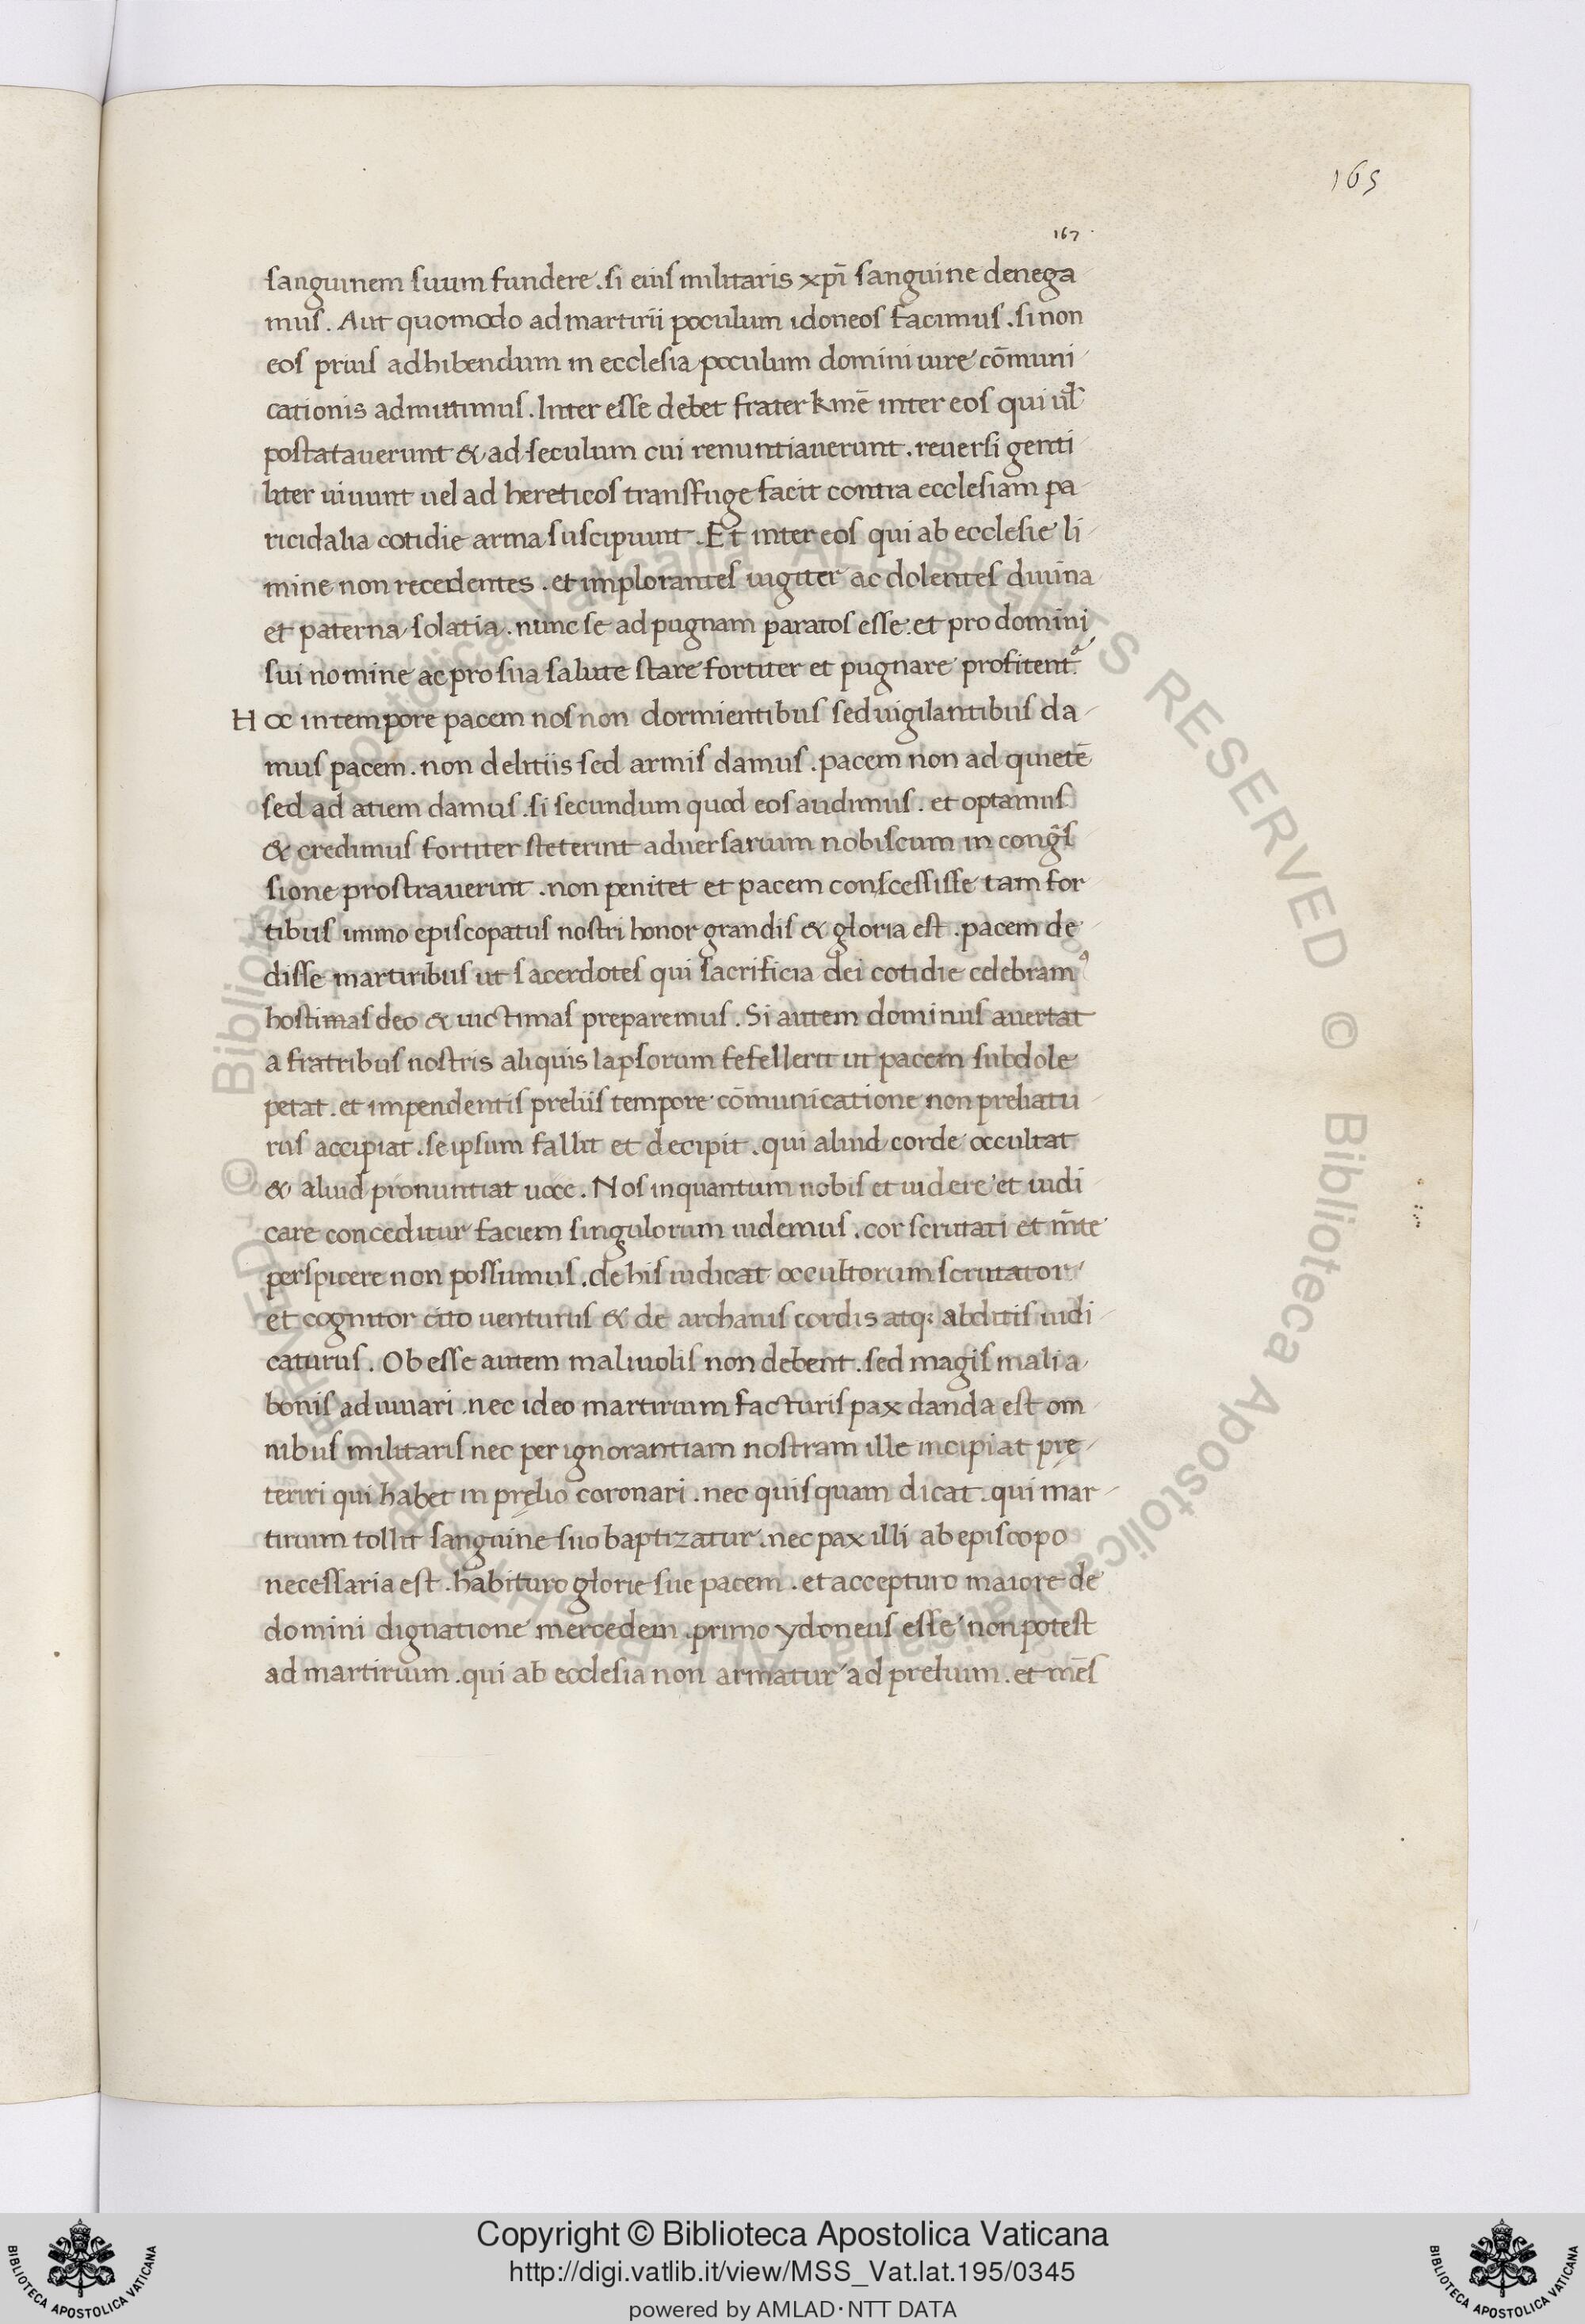 165
167
sanguinem suum fundere. si eius militaris xp̄i sanguine denega
mus. Aut quomodo ad martirii poculum idoneos facimus. si non
eos prius adhibendum in ecclesia poculum domini iure cōmuni
cationis admittimus. Inter esse debet frater kmē inter eos qui ul̄
postatauerunt & ad seculum cui renuntiauerunt. reuersi genti
liter uiuunt uel ad hereticos transfuge facit contra ecclesiam pa
ricidalia cotidie arma suscipiunt. Et inter eos qui ab ecclesie li
mine non recedentes. et implorantes iugiter ac dolentes diuina
et paterna solatia. nunc se ad pugnam paratos esse. et pro domini
sui nomine ac pro sua salute stare fortiter et pugnare profitent᷑
Hoc in tempore pacem nos non dormientibus sed uigilantibus da
mus pacem. non delitiis sed armis damus. pacem non ad quietē
sed ad atiem damus. si secundum quod eos audimus. et optamus
& credimus fortiter steterint aduersarium nobiscum in cong̃s
sione prostrauerint. non penitet et pacem conscessisse tam for
tibus immo episcopatus nostri honor grandis & gloria est. pacem de
disse martiribus ut sacerdotes qui sacrificia dei cotidie celebramꝰ
hostimas deo & uictimas preparemus. Si autem dominus auertat
a fratribus nostris aliquis lapsorum fefellerit ut pacem subdole
petat. et impendentis preliis tempore cōmunicatione non preliatu
rus accipiat. se ipsum fallit et decipit. qui aliud corde occultat
& aliud pronuntiat uoce. Nos inquantum nobis et uidere et iudi
care conceditur faciem singulorum uidemus. cor scrutati et m̄te
perspicere non possumus. de his iudicat occultorum scrutator
et cognitor cito uenturus & de archanis cordis atq; abditis iudi
caturus. Ob esse autem maliuolis non debent. sed magis mali a
bonis adiuuari. nec ideo martirium facturis pax danda est om
nibus militaris nec per ignorantiam nostram ille incipiat prę
teriri qui habet in pręlio coronari. nec quisquam dicat. qui mar
tirium tollit sanguine suo baptizatur. nec pax illi ab episcopo
necessaria est. habituro glorie sue pacem. et accepturo maiore de
domini dignatione mercedem. primo ydoneus esse non potest
ad martirium. qui ab ecclesia non armatur ad prelium. et mēs
© Biblioteca Apostolica Vaticana
RESERVED © Biblioteca Apostolica Vaticana
Copyright © Biblioteca Apostolica Vaticana
http://digi.vatlib.it/view/MSS_Vat.lat.195/0345
powered by AMLAD·NTT DATA
BIBLIOTECA APOSTOLICA VATICANA
BIBLIOTECA APOSTOLICA VATICANA